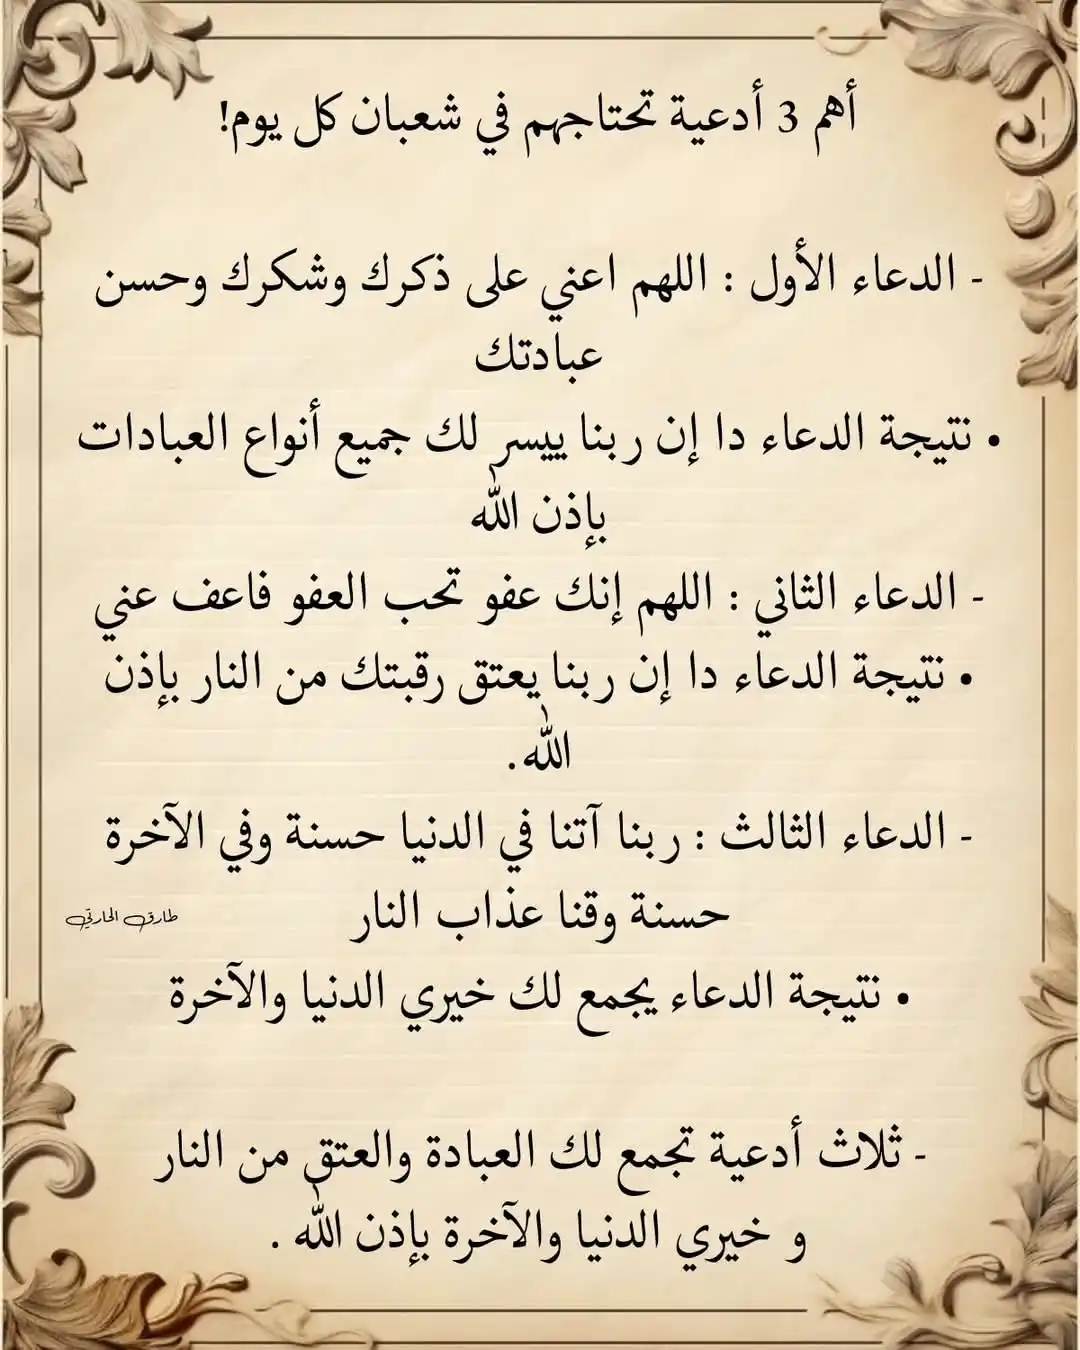 أهم 3 أدعية تحتاجهم في شعبان كل يوم!
- الدعاء الأول : اللهم اعني على ذكرك وشكرك وحسن
عبادتك
• نتيجة الدعاء دا إن ربنا ييسر لك جميع أنواع العبادات
بإذن الله
- الدعاء الثاني : اللهم إنك عفو تحب العفو فاعف عني
• نتيجة الدعاء دا إن ربنا يعتق رقبتك من النار بإذن
الله.
- الدعاء الثالث : ربنا آتنا في الدنيا حسنة وفي الآخرة
حسنة وقنا عذاب النار
طارق الحارتي
• نتيجة الدعاء يجمع لك خيري الدنيا والآخرة
- ثلاث أدعية تجمع لك العبادة والعتق من النار
و خيري الدنيا والآخرة بإذن الله .